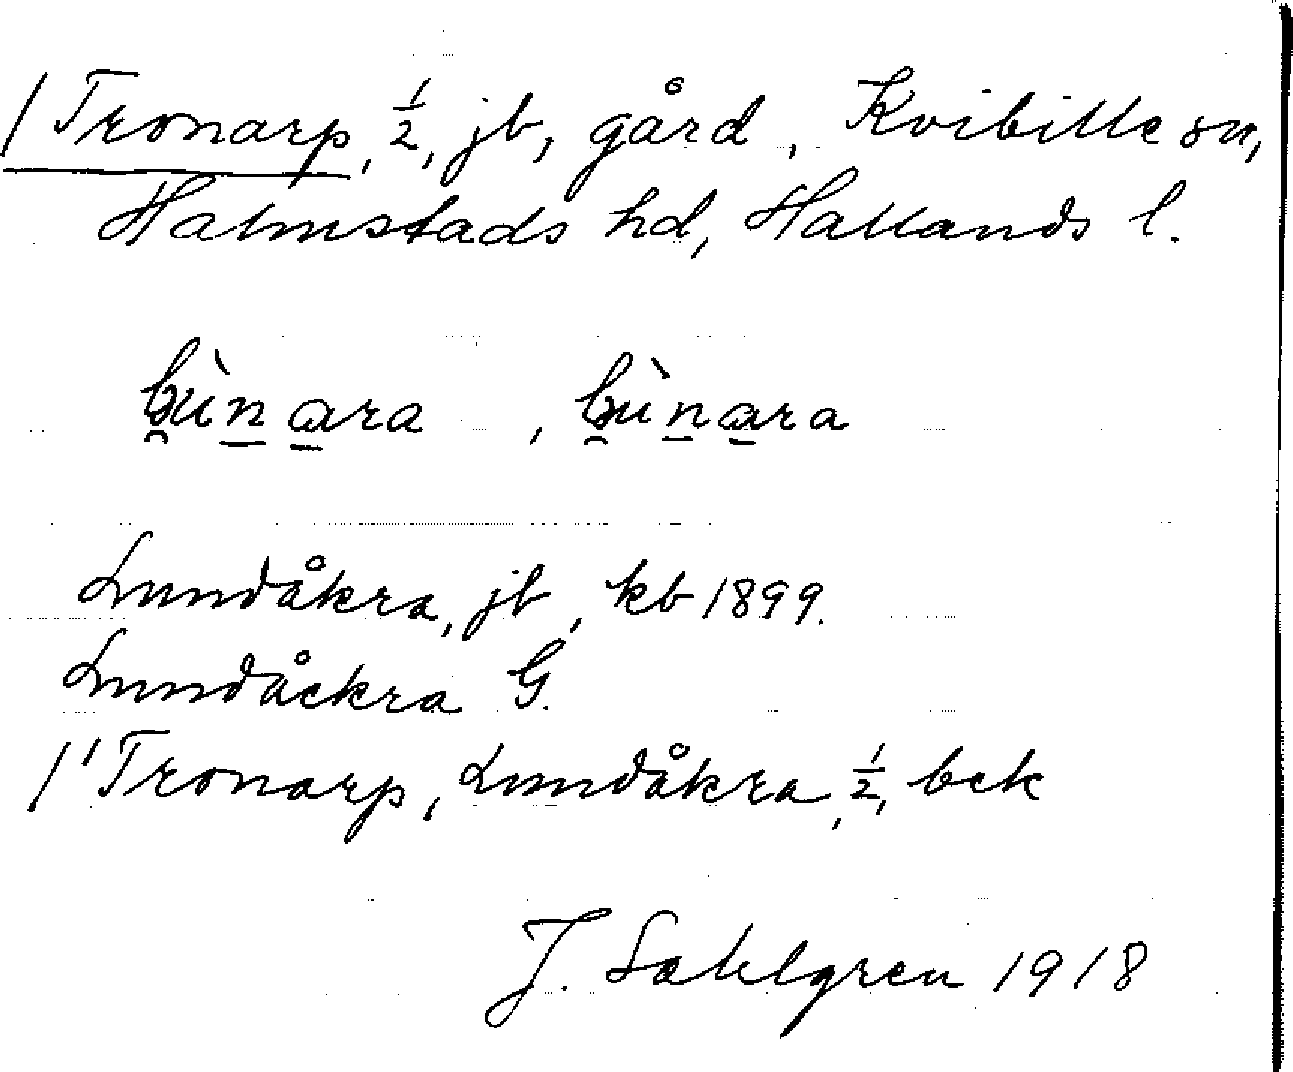 / Tronarp, ½, jb, gård, Kvibille sn,
Halmstads hd, Hallands l.
Lundåkra, jb, kb 1899.
Lundåckra G.
/' Tronarp, Lundåkra, ½, bek
J. Sahlgren 1918